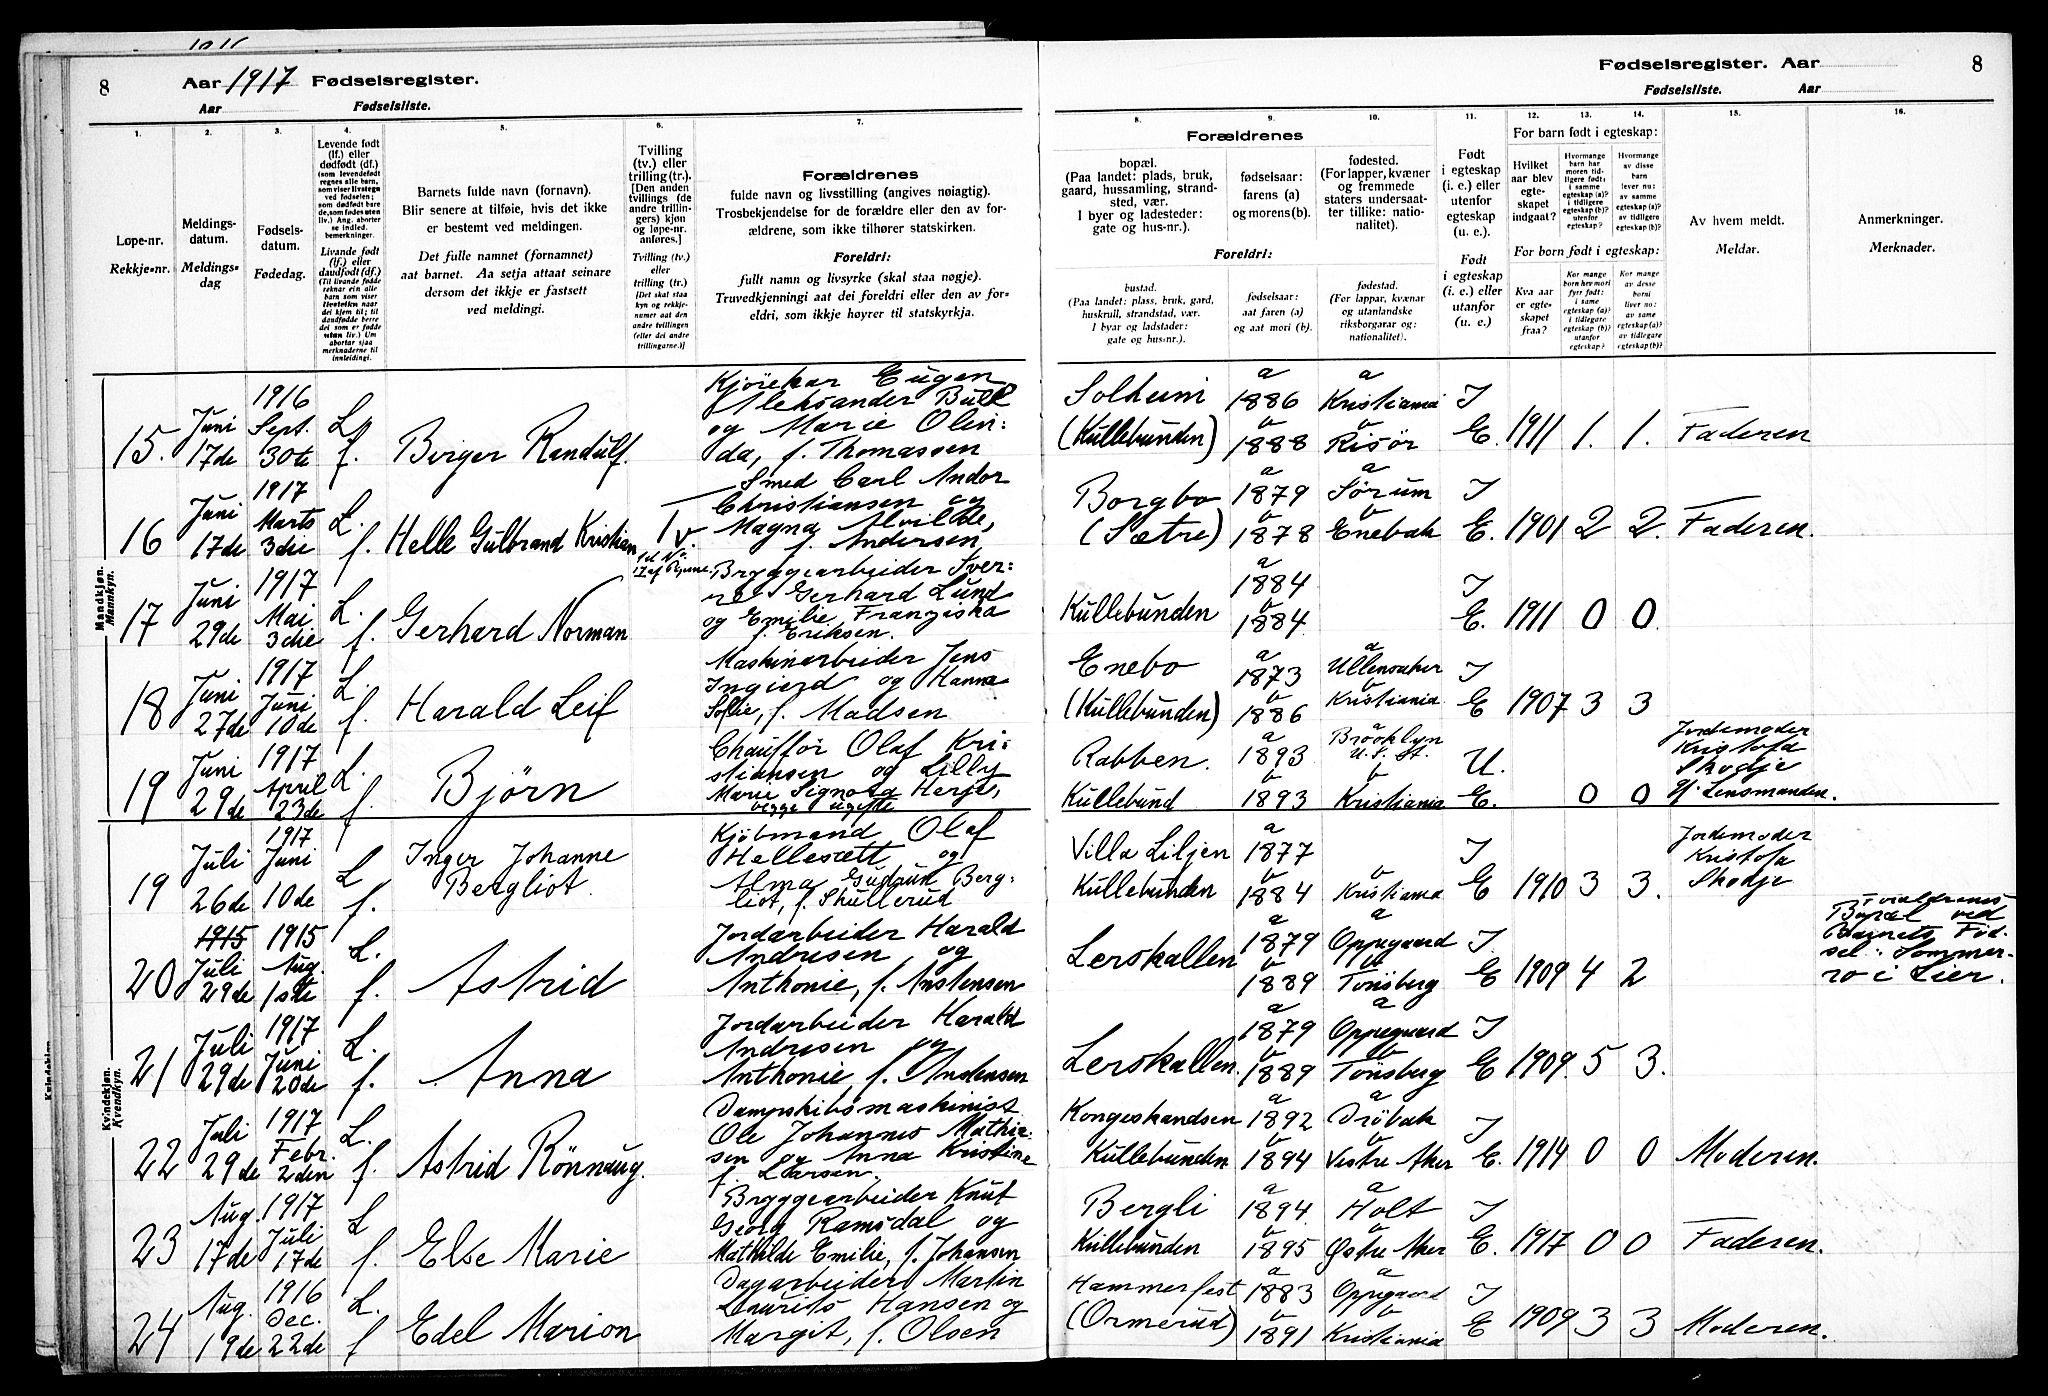 8
Aar 1917 Fødselsregister.
Aar Fødselsliste.
Fødselsregister. Aar
Fødselsliste. Aar
8
1. 2. 3. 4. 5. 6. 7.
Løpe-nr.
Rekkje-nr.
Meldings-
datum.
Meldings-
dag
Fødsels-
datum.
Fødedag.
Levende født
(lf.) eller
dødfødt (df.)
(som levendefødt
regnes alle barn,
som viser livstegn
ved fødselen;
som dødfødt bare
de, som fødes uten
liv.) Ang. aborter
se indled.
bemerkninger.
Livande født
(lf.) eller
daudfødt (df.)
(Til livande fødde
reknar ein alle
barn som viser
livsteikn naar
dei kjem til; til
daudfødde berre
dei som er fødde
utan liv.) Um
abortar sjaa
merknaderne til
innleidingi.
Barnets fulde navn (fornavn).
Blir senere at tilføie, hvis det ikke
er bestemt ved meldingen.
Det fulle namnet (fornamnet)
aat barnet. Aa setja attaat seinare
dersom det ikkje er fastsett
ved meldingi.
Tvilling
(tv.) eller
trilling (tr.).
[Den anden
tvillings (de
andre trillin-
gers) kjøn
og løpe-nr.
anføres.]
Tvilling (tv.)
eller
trilling (tr.)
[Det skal staa
kyn og rekkje-
numer aat den
andre tvillingen
(eller dei andre
trillingarne.)]
Forældrenes
fulde navn og livsstilling (angives nøiagtig).
Trosbekjendelse for de forældre eller den av for-
ældrene, som ikke tilhører statskirken.
Foreldri:
fullt namn og livsyrke (skal staa nøgje).
Truvedkjenningi aat dei foreldri eller den av for-
eldri, som ikkje høyrer til statskyrkja.
8. 9. 10. 11. 12. 13. 14. 15. 16.
Forældrenes
bopæl.
(Paa landet: plads, bruk,
gaard, hussamling, strand-
sted, vær.
I byer og ladesteder:
gate og hus-nr.).
fødselsaar:
farens (a)
og morens (b).
fødested.
(For lapper, kvæner
og fremmede
staters undersaat-
ter tillike: natio-
nalitet).
Foreldri:
bustad.
(Paa landet: plass, bruk, gard,
huskrull, strandstad, vær.
I byar og ladstader:
gate og hus-nr.).
fødselsaar:
aat faren (a)
og aat mori (b).
fødestad.
(For lappar, kvænar
og utanlandske
riksborgarar og:
nationalitet).
Født
i egteskap
(i. e.) eller
utenfor
egteskap
(u. e.).
Født
i egteskap
(i. e.) eller
utanfor
(u. e.).
For barn født i egteskap:
Hvilket
aar blev
egte-
skapet
indgaat?
Hvormange
barn har
moren tid-
ligere født:
i samme
egteskap (a)?
i tidligere
egteskap (b)?
utenfor
egteskap?
Hvormange
av disse
barn
lever nu:
av samme
egteskap (a)?
av tidligere
egteskap (b)?
For born født i egteskap:
Kva aar
er egte-
skapet
fraa?
Kor mange
born hev mori
fyrr født:
i same
egteskap (a)?
i tidlegare
egteskap (b)?
utanfor
egteskap?
Kor mange
av desse
borni
liver no:
av same
egteskap (a)?
av tidlegare
egteskap (b)?
Av hvem meldt.
Meldar.
Anmerkninger.
Merknader.
Mandkjøn.
Mannkyn.
15. Juni 17de 1916 Sept. 30te L. f. Birger Randulf.
Kjørekar Eugen
Aleksander Bull
og Marie Olin-
da, f. Thomassen
Solheim (Kullebunden) a 1886 b 1888 a Kristiania b Risör I E. 1911 1. 1. Faderen
16 Juni 17de 1917 Marts 3die L. f. Helle Gulbrand Kristian Tv.
Smed Carl Andor
Christiansen og
Magna Alvilde,
f. Andersen
Borgbo (Sætre) a 1879 b 1878 a Sørum b Enebak I E. 1901 2 2. Faderen.
17 Juni 29de 1917 Mai 3die L. f. Gerhard Norman
Bryggearbeider Sver-
re Gerhard Lund
og Emilie Franziska
f. Eriksen.
Kullebunden 1884 b 1884. I E. 1911 0 0.
18 Juni 27de 1917 Juni 10de L. f. Harald Leif
Maskinarbeider Jens
Ingierd og Hanna
Sofie, f. Madsen
Enebo (Kullebunden) a 1873 b 1886 a Ullensaker b Kristiania I E 1907 3 3
19 Juni 29de 1917 April 23de L. f. Bjørn
Chauffør Olaf Kri-
stiansen og Lilly
Marie Signora Herje,
begge ugifte
Rabben. Kullebund a 1893 b 1893 a Brooklyn U. S. St. b Kristiania U. E. 0 0 Jordemoder
Kristofa
Skodje
g/. Lensmanden.
Kvindekjøn.
Kvendkyn.
19 Juli 26de 1917 Juni 10de L f. Inger Johanne
Bergliot.
Kjøbmand Olaf
Hellesætt og
Alma Gudrun Berg-
liot, f. Skullerud
Villa Liljen Kullebunden a 1877 b 1884 b Kristiania I E 1910 3 3. Jordemoder
Kristofa
Skodje
20 1915 Juli 29de 1915 Aug. 1ste L. f. Astrid
Jordarbeider Harald
Andresen og
Anthonie, f. Anstensen
Lerskallen a 1879 b 1889 a Oppegaard b Tönsberg I E 1909 4 2 Forældrenes
Bopæl ved
Barnets Fød-
sel: Sommer-
ro i Lier.
21 Juli 29de 1917 Juni 20de L. f. Anna
Jordarbeider Harald
Andresen og
Anthonie, f. Anstensen
Lerskallen. a 1879 b 1889 a Oppegaard b Tönsberg I E 1909. 5 3.
22 Juli 29de 1917 Febr. 2den L. f. Astrid Rönnaug.
Dampskibsmaskinist
Ole Johannes Mathie-
sen og Anna Kristine
f. Larsen.
Kongeskandsen Kullebunden a 1892 b 1894 a Dröbak b Vestre Aker I E. 1914 0 0 Moderen.
23 Aug. 17de 1917 Juli 17de L f. Else Marie
Bryggearbeider Knut
Georg Ramsdal og
Mathilde Emilie, f. Johansen
Bergli Kullebunden a 1894 b 1895 a Holt b Østre Aker I E. 1917 0 0 Faderen.
24 Aug. 19de 1916 Dec. 22de L. f Edel Marion
Dagarbeider Martin
Laurits Hansen og
Margit, f. Olsen
Hammerfest (Ormerud) a 1883 b 1891 a Oppegaard b Kristiania I E 1909 3 3 Moderen.